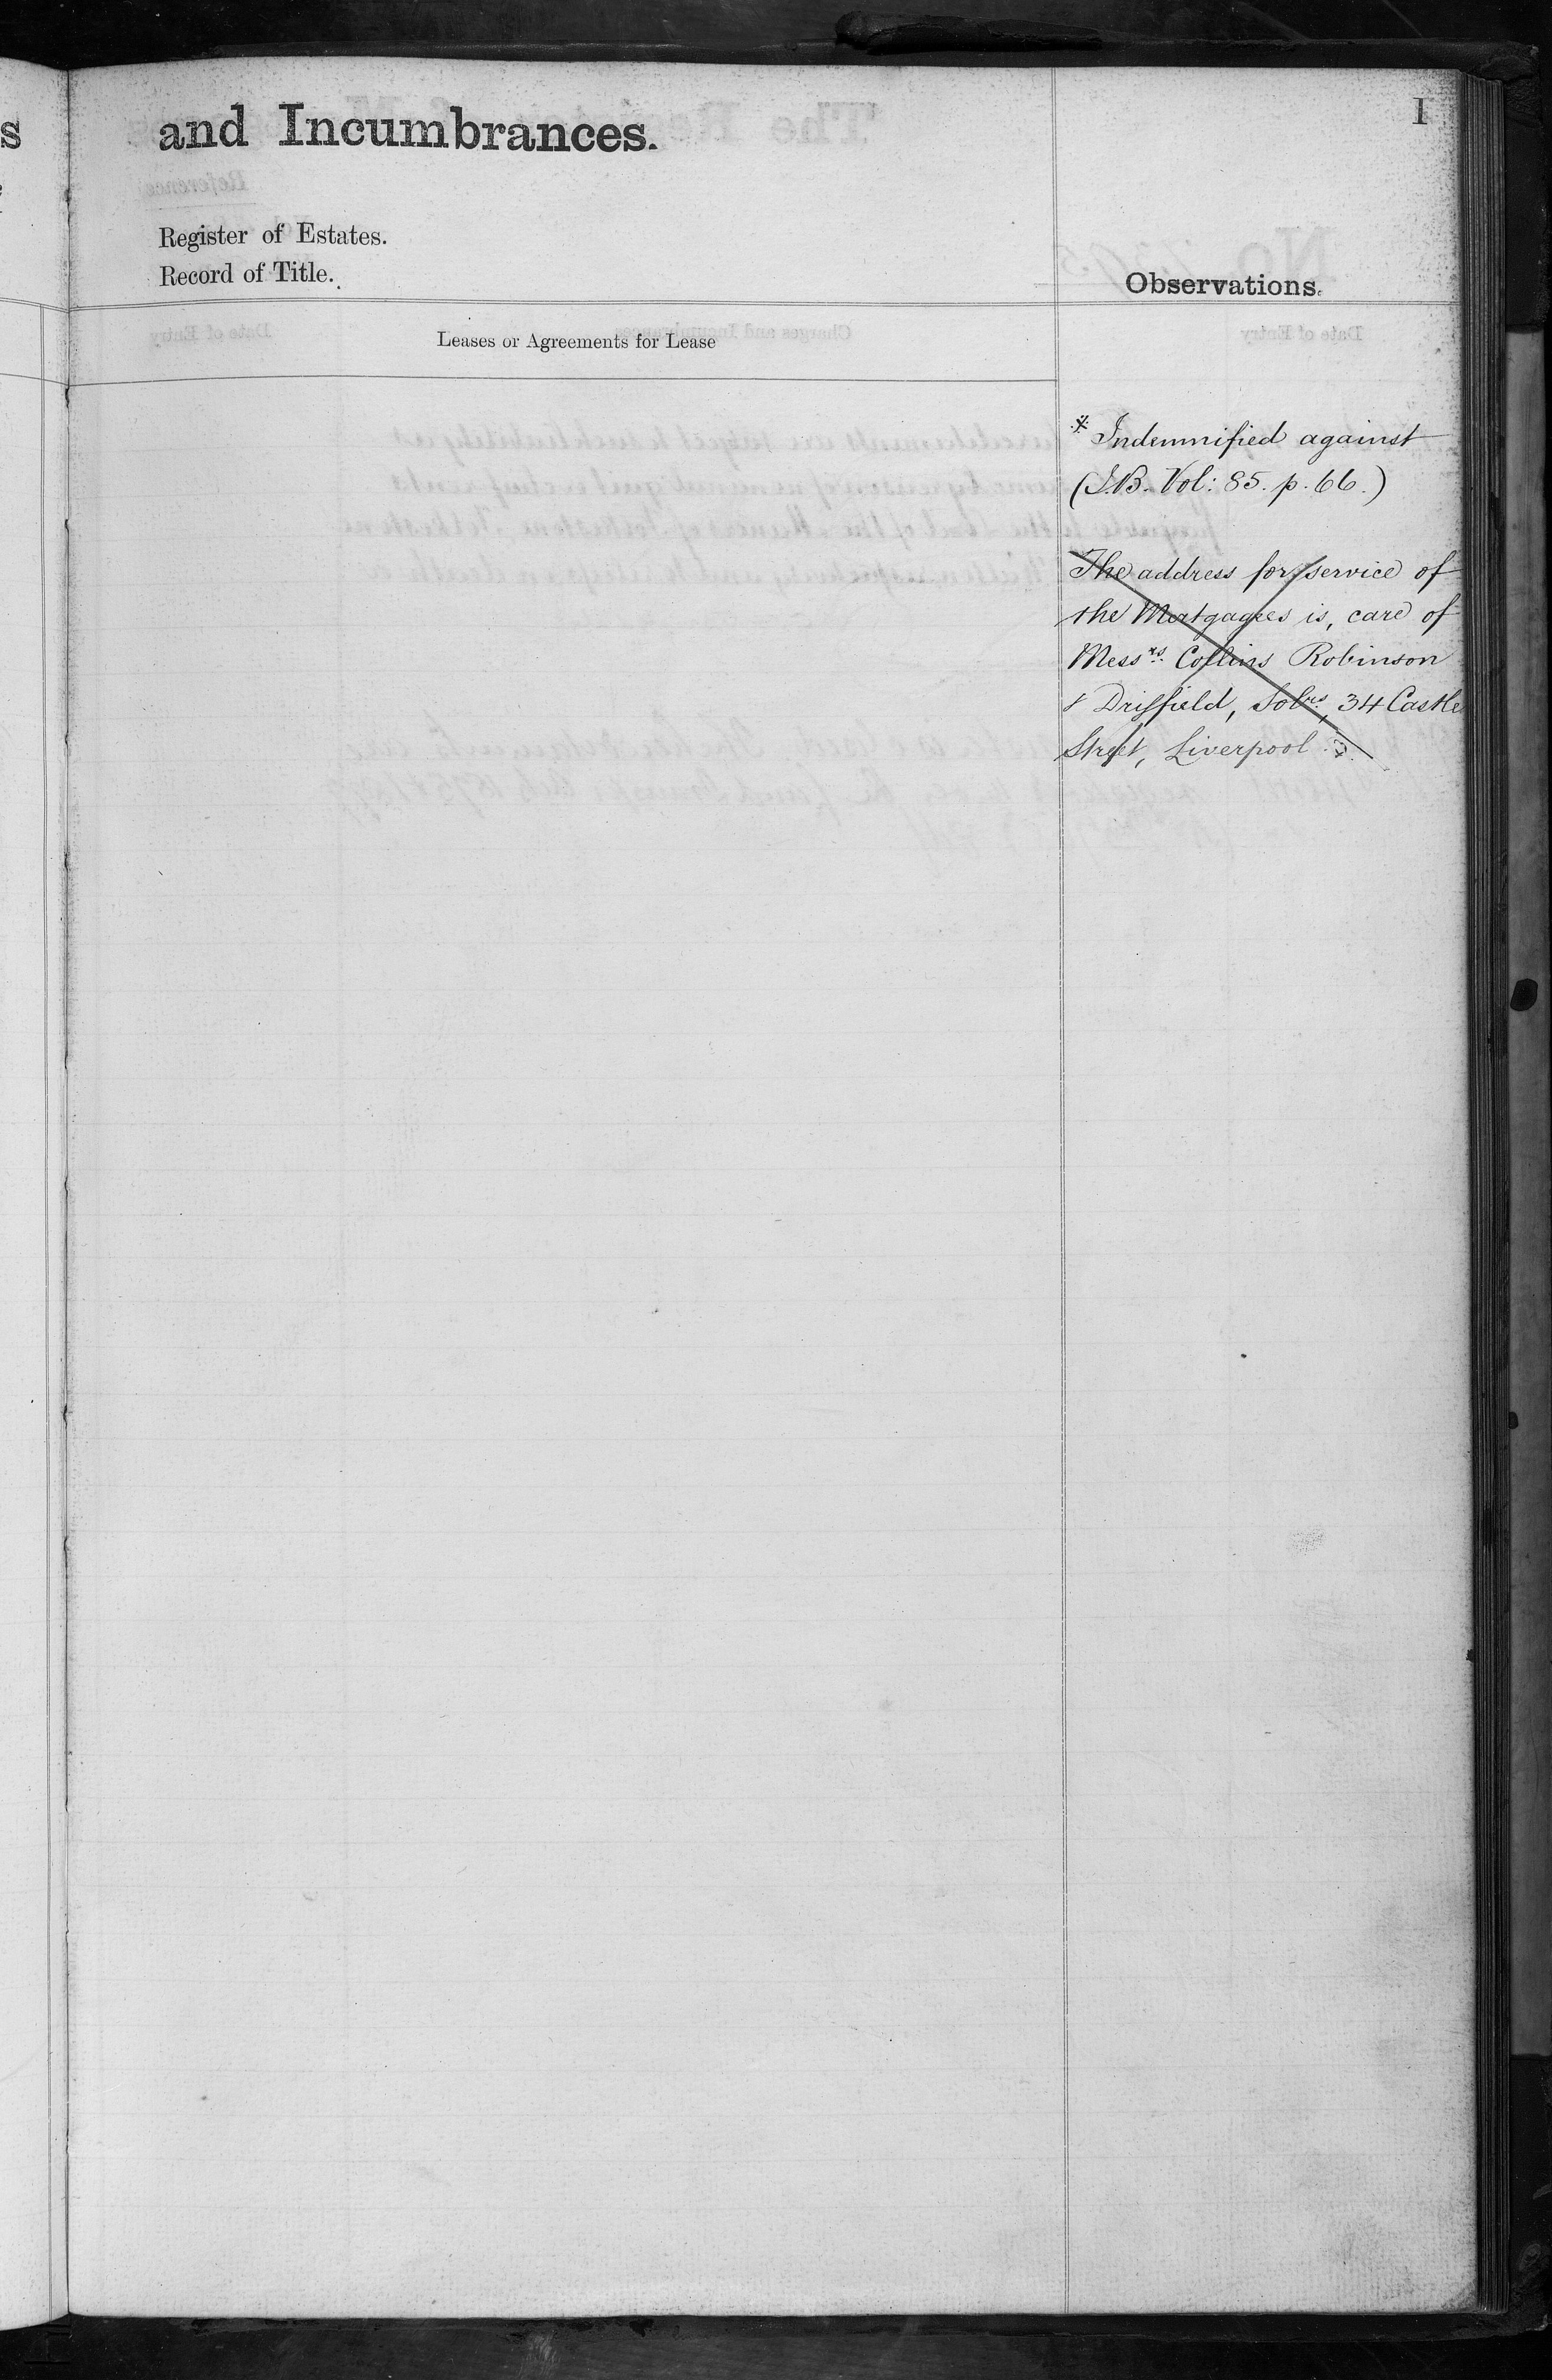 and Incumbrances.
I
Register of Estates.
Record of Title.
Observations.
Leases or Agreements for Lease
* Indemnified against
(I.B. Vol: 85. p. 66.)
The address for service of
the Mortgagees is, care of
Messrs. Collins Robinson
& Driffield, Solrs, 34 Castle
Street, Liverpool.